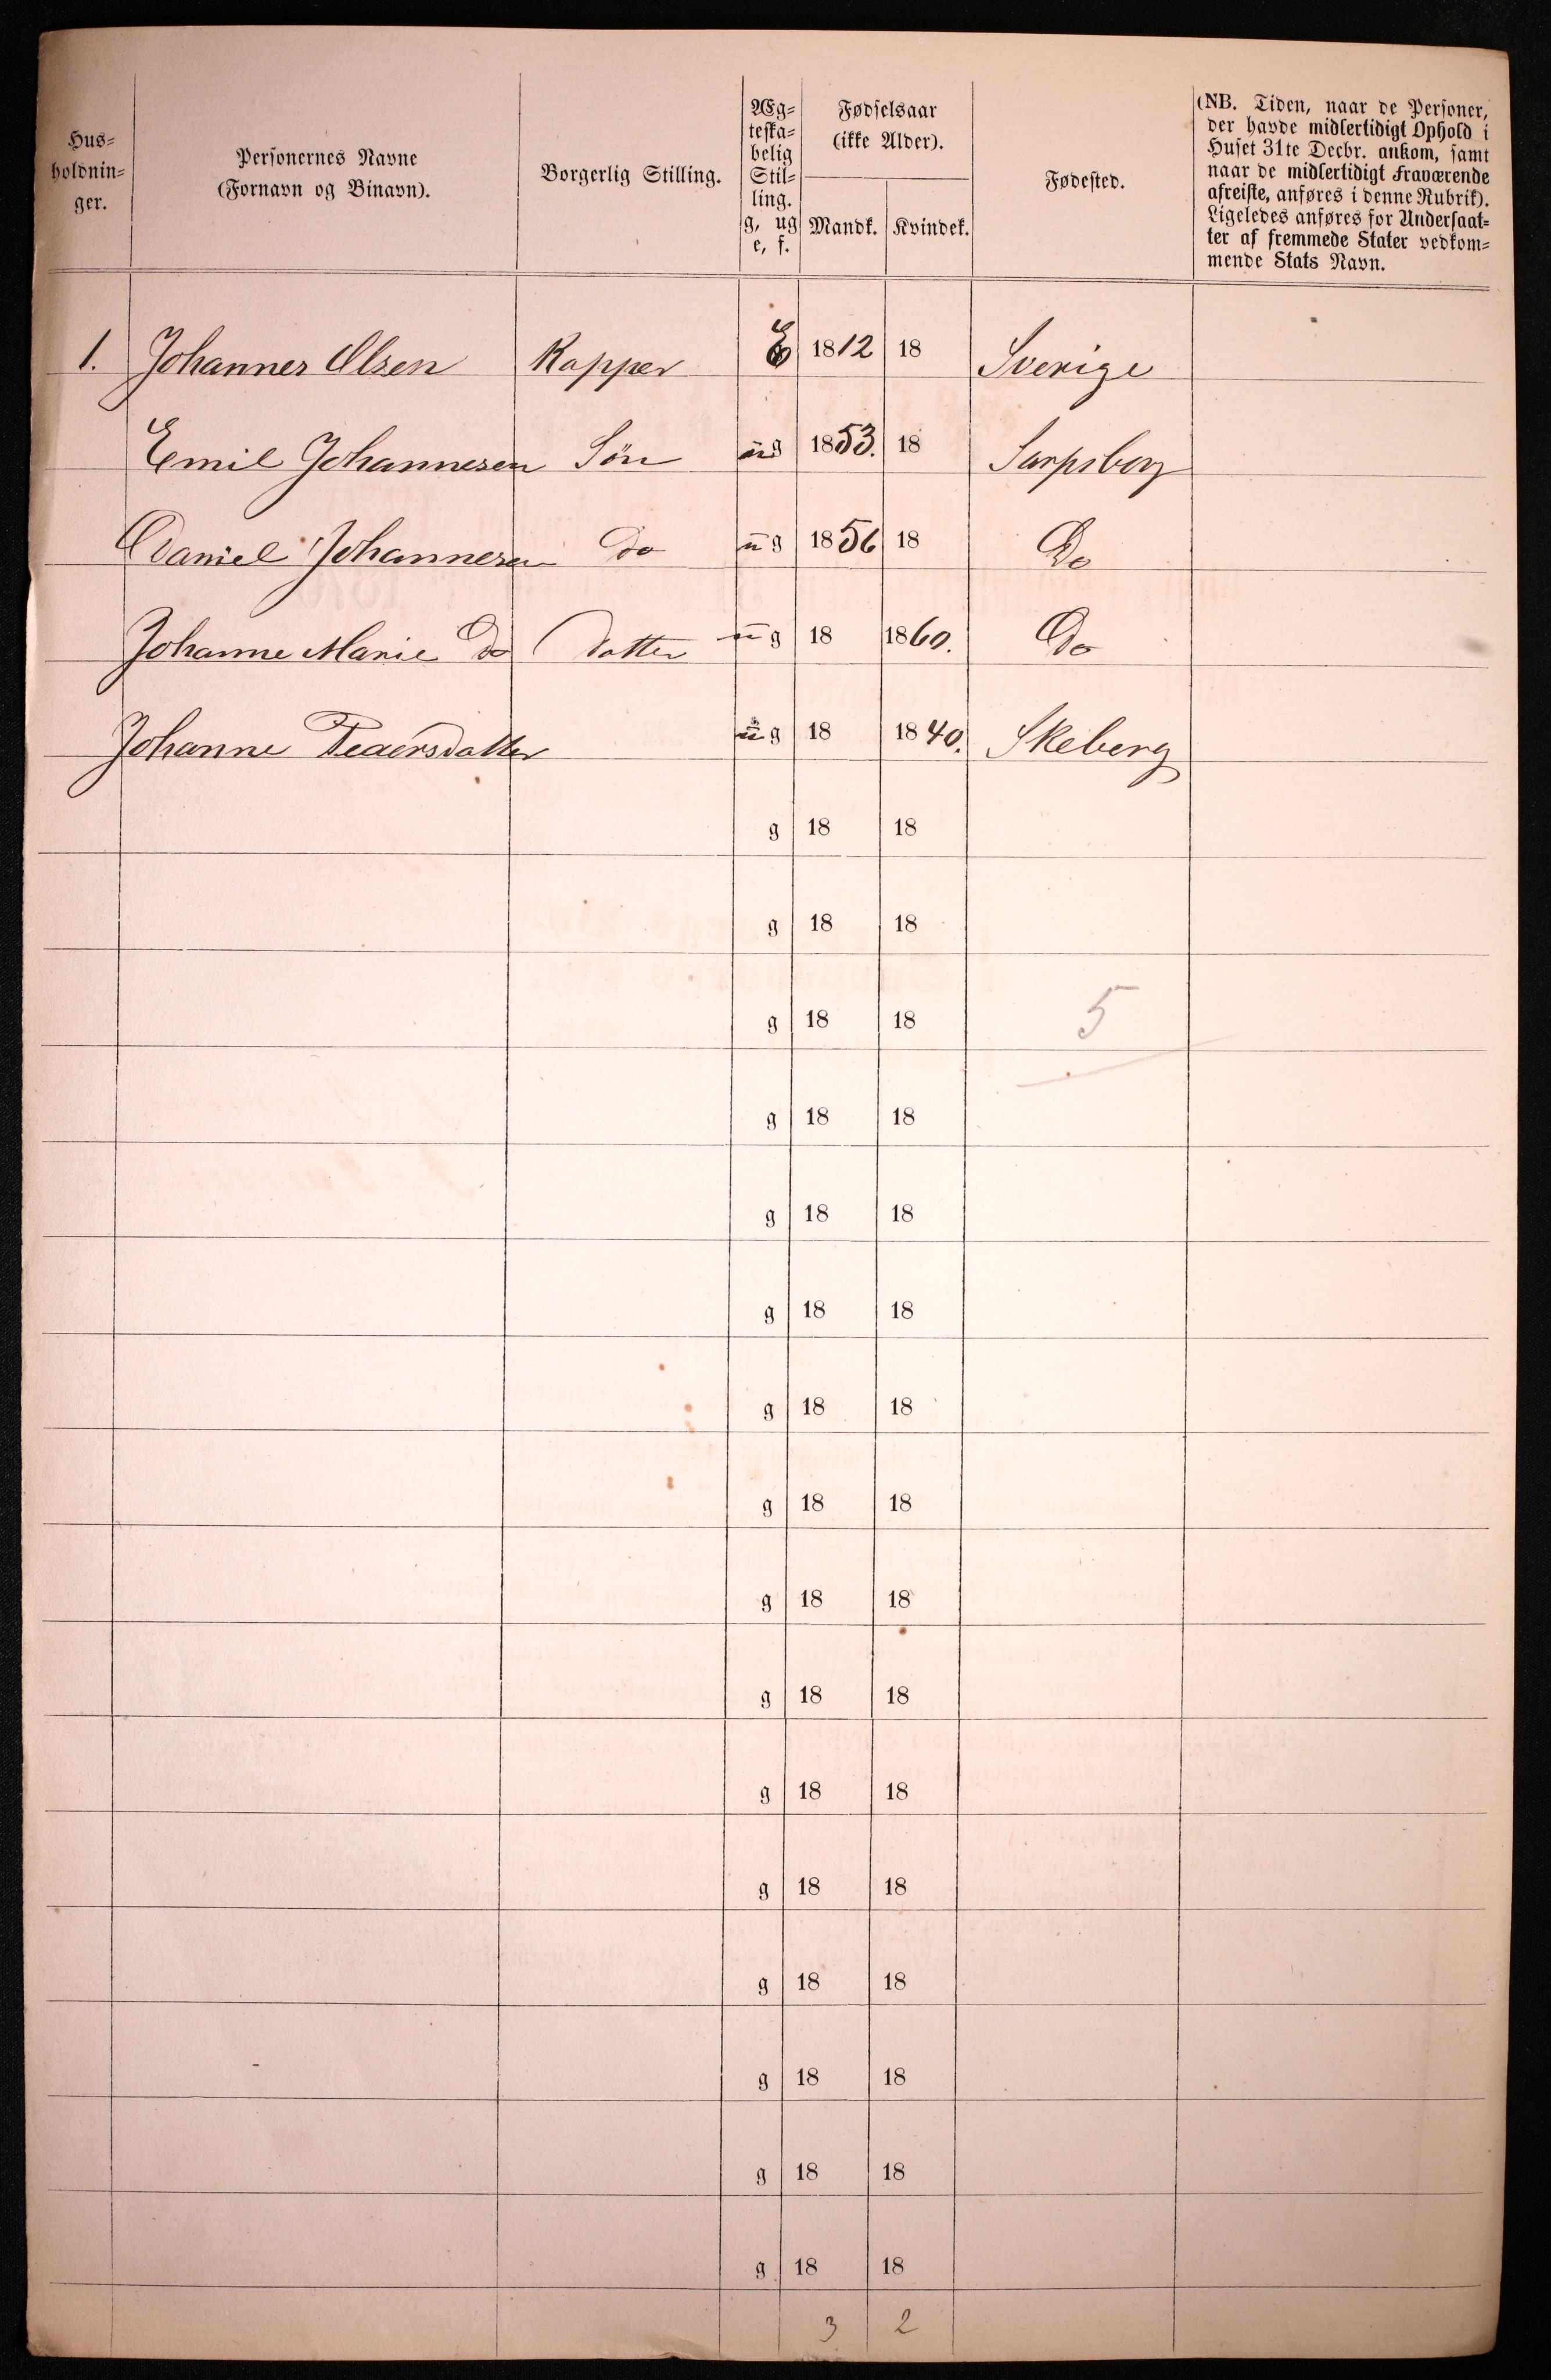 Hus-
holdnin-
ger.
Personernes Navne
(Fornavn og Binavn).
Borgerlig Stilling.
Æg-
teska-
belig
Stil-
ling.
g, ug
e, f.
Fødselsaar
(ikke Alder).
Mandk. Kvindek.
Fødested.
(NB. Tiden, naar de Personer,
der havde midlertidigt Ophold i
Huset 31te Decbr. ankom, samt
naar de midlertidigt Fraværende
afreiste, anføres i denne Rubrik).
Ligeledes anføres for Undersaat-
ter af fremmede Stater vedkom-
mende Stats Navn.
1. Johannes Olsen Kapper E 1812 18 Sverige
Emil Johannesen Sön ug 1853. 18 Sarpsborg
Daniel Johannesen Do ug 1856 18 Do
Johanne Marie Do Datter ug 18 1860. Do
Johanne Peaersdatter ug 18 1840. Skeberg
g 18 18
g 18 18
g 18 18 5
g 18 18
g 18 18
g 18 18
g 18 18
g 18 18
g 18 18
g 18 18
g 18 18
g 18 18
g 18 18
g 18 18
g 18 18
g 18 18
3 2